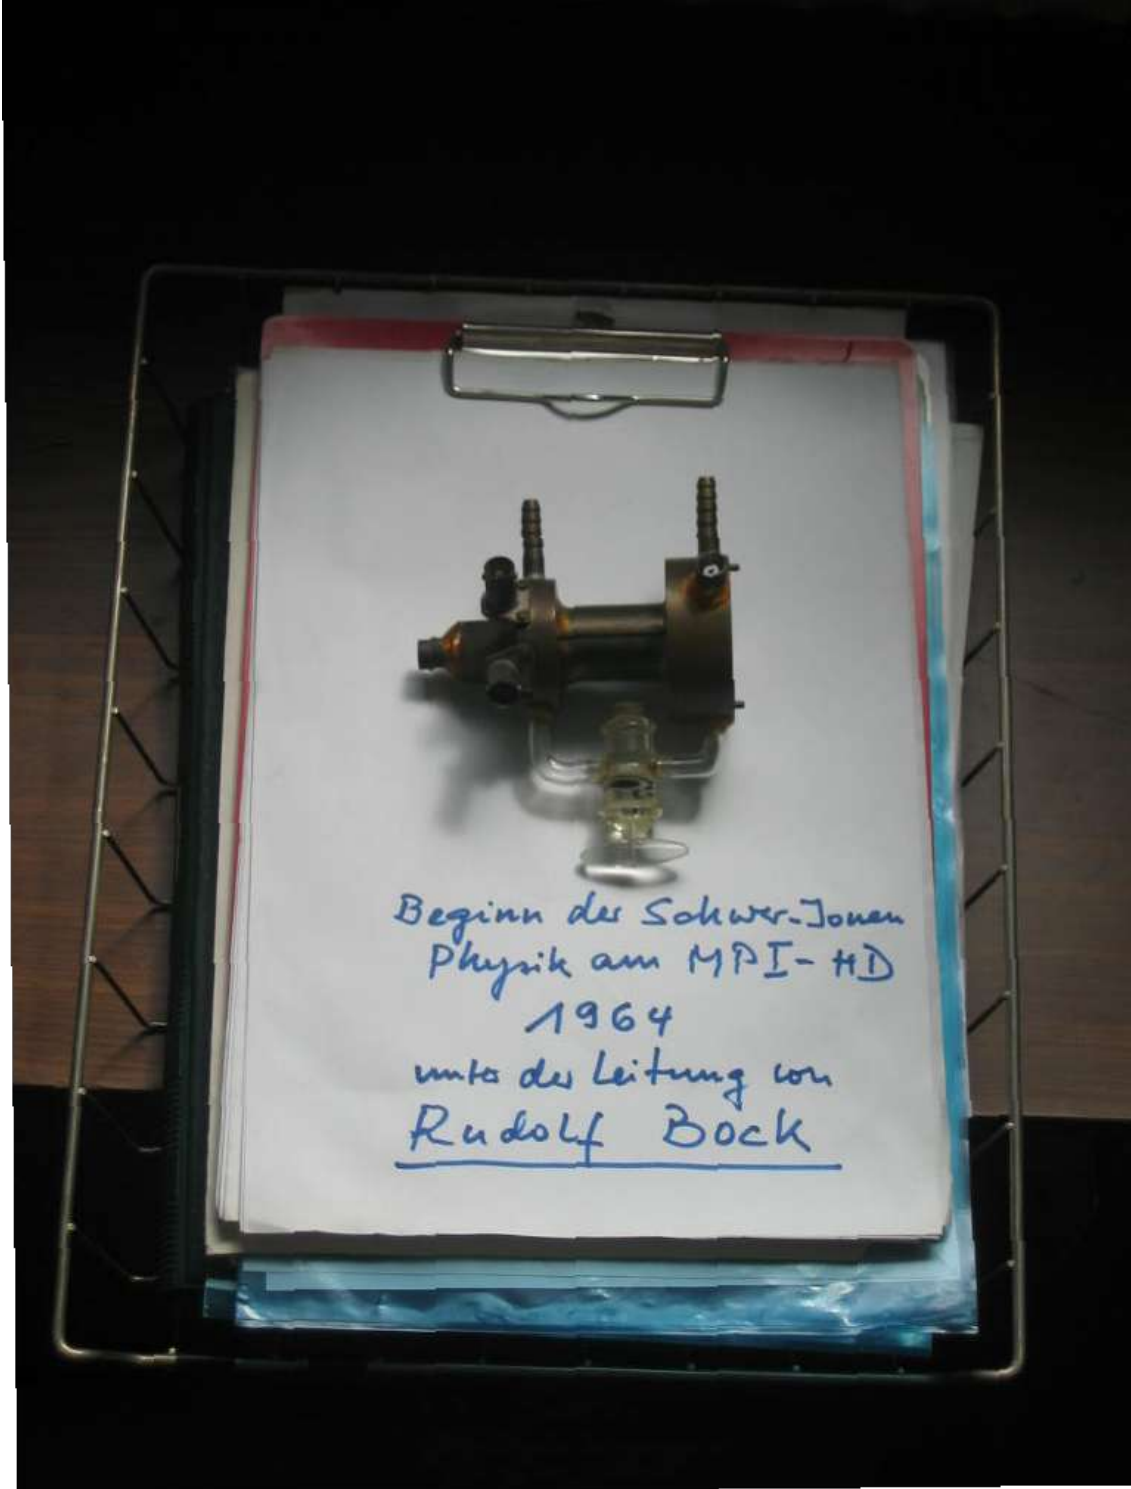 Beginn der Schwer-Ionen
Physik am MPI-HD
1964
unter der Leitung von
Rudolf Bock